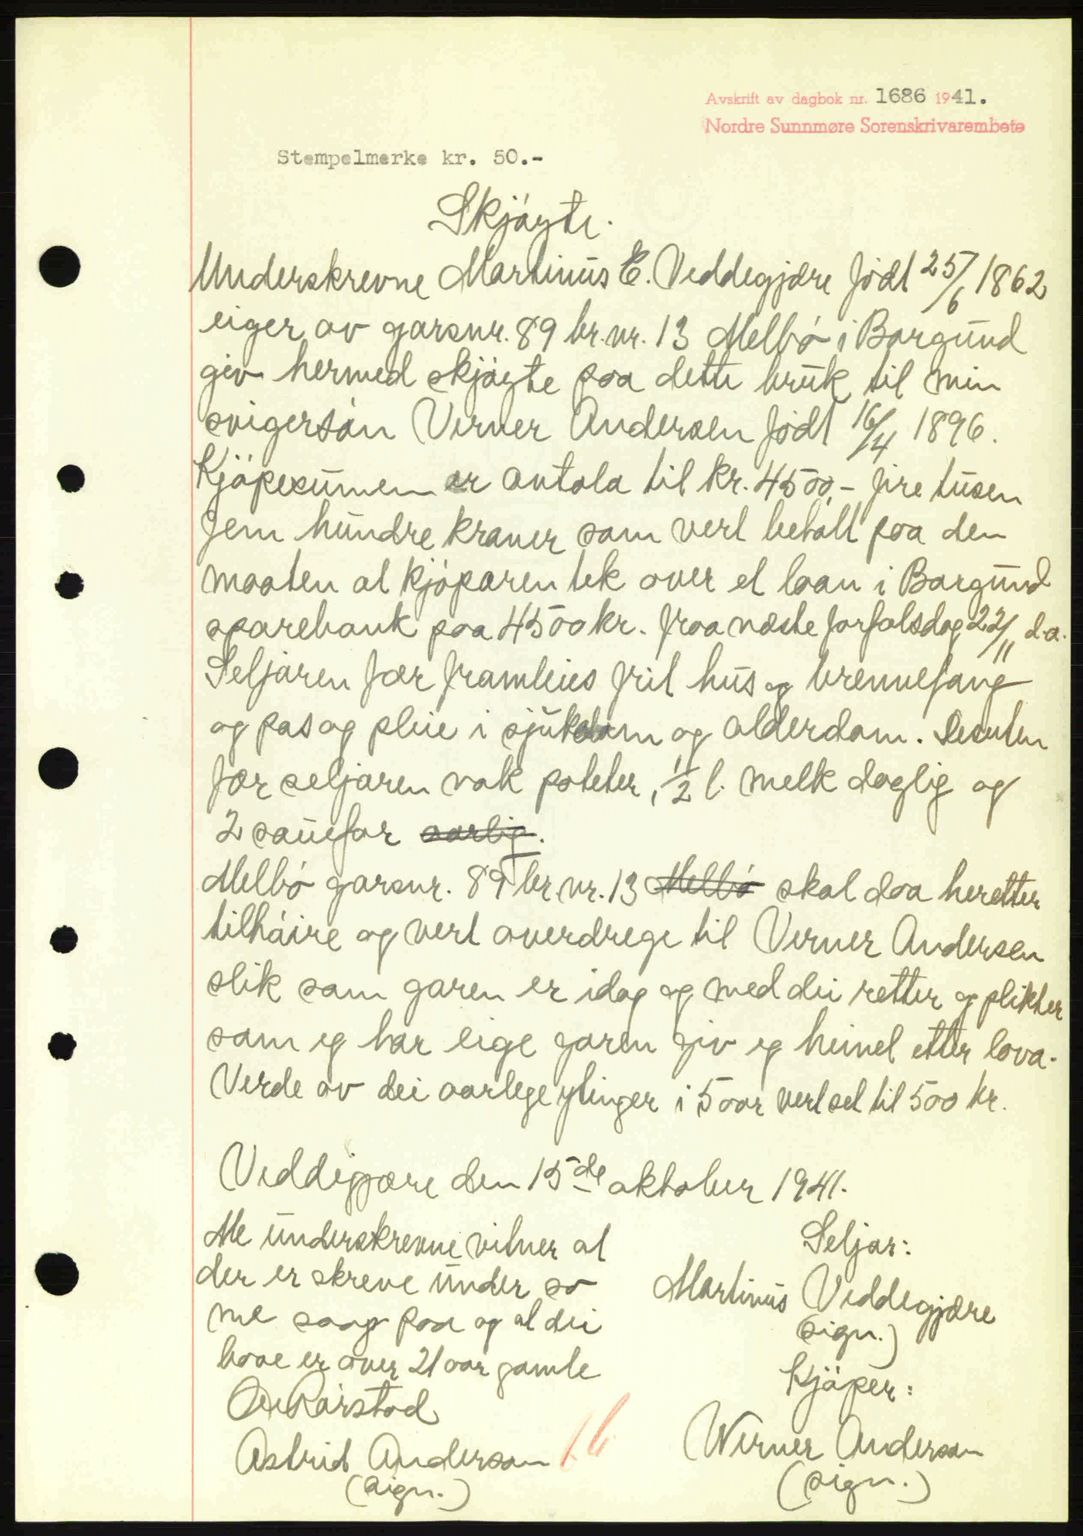 Avskrift av dagbok nr. 1686 1941.
Nordre Sunnmøre Sorenskrivarembete
Stempelmerke kr. 50.-
Skjöyte.
Underskrevne Martinus E. Veddegjære födt 25/6 1862
eiger av garsnr. 89 br.nr. 13 Melbö i Borgund
giv hermed skjöyte paa dette bruk til min
svigersön Verner Andersen födt 16/4 1896.
Kjöpesumen er avtala til kr. 4500,- fire tusen
fem hundre kroner som vert betalt paa den
maaten at kjöparen tek over et laan i Borgund
sparebank paa 4500 kr. fraa næste forfalsdag 22/11 d.a.
Seljaren fær framleies frit hus og brennefang
og pas og pleie i sjukdom og alderdom. Desuten
fær seljaren nok poteter, 1/2 l. melk daglig og
2 sauefor aarlig.
Melbö garsnr. 89 br.nr. 13 Melbö skal daa heretter
tilhöire og vert overdrege til Verner Andersen
slik som garen er idag og med dei retter og plikter
som eg har eige garen giv eg heimel etter lova.
Verde av dei aarlege ytinger i 5 aar vert set til 500 kr.
Veddegjære den 15de oktober 1941.
Me underskrevne vitner at
der er skreve under so
me saag paa og at dei
bove er over 21 aar gamle
Astrid Andersen
(sign.)
Seljar:
Martinus Veddegjære
(sign.)
Kjöper:
Werner Andersen
(sign.)